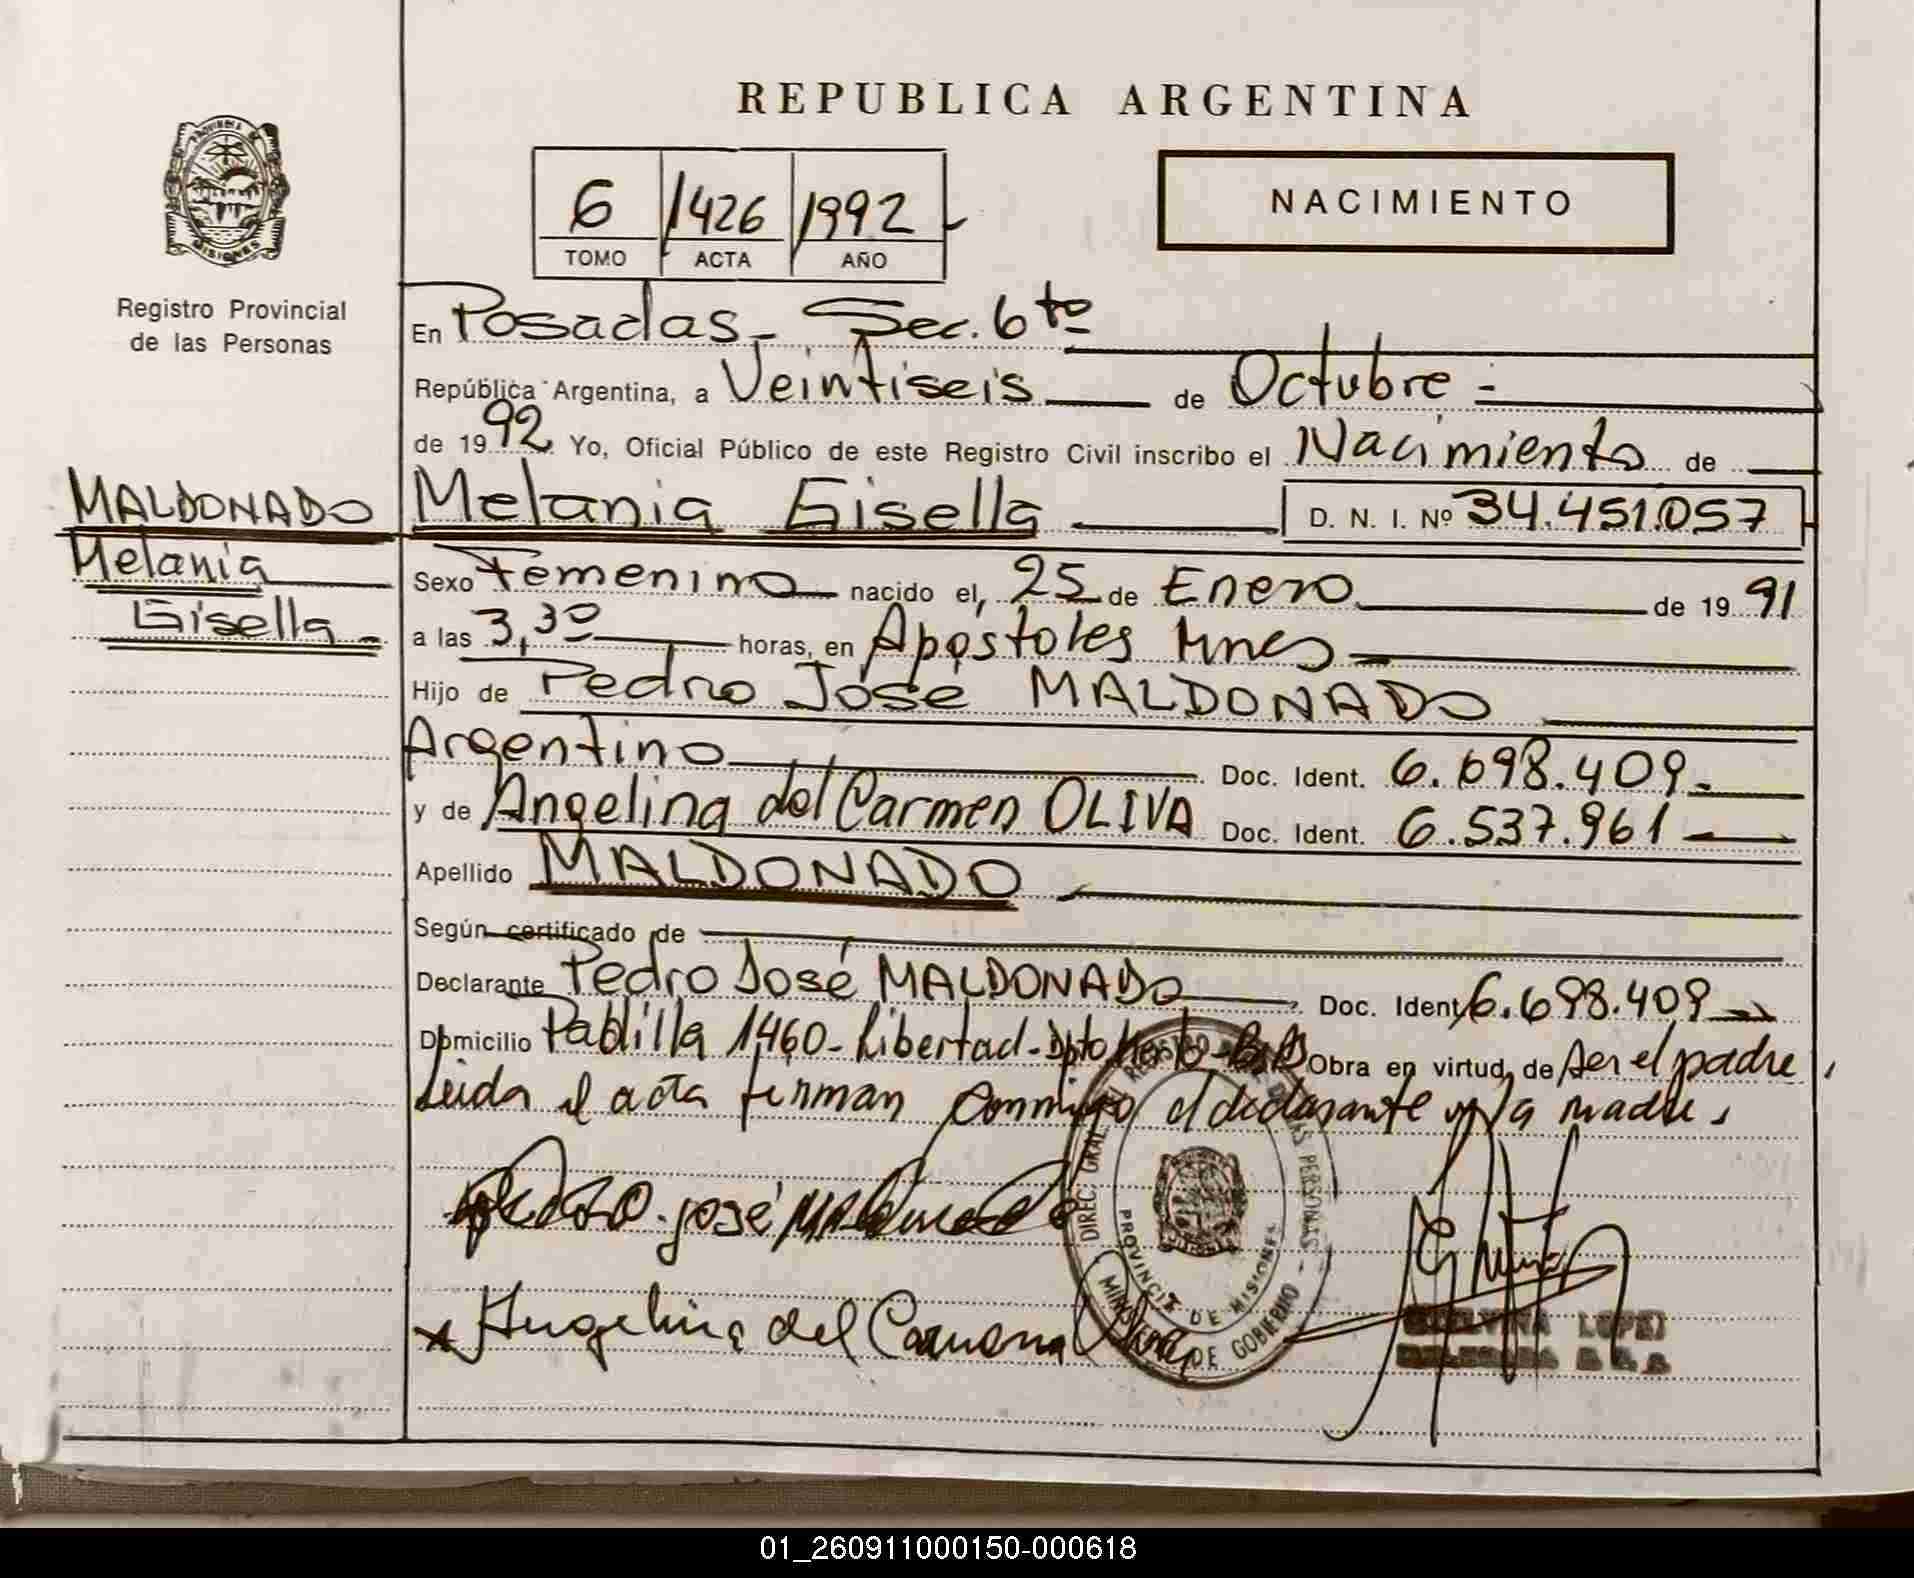 REPUBLICA ARGENTINA
6 1426 1992
TOMO ACTA AÑO
NACIMIENTO
PROVINCIA DE
MISIONES
Registro Provincial
de las Personas
MALDONADO
Melania
Gisella
En Posadas - Sec. 6to
República Argentina, a Veintiseis de Octubre
de 1992 Yo, Oficial Público de este Registro Civil inscribo el Nacimiento de
Melania Gisella D. N. I. Nº 34.451.057
Sexo Femenino nacido el, 25 de Enero de 1991
a las 3,30 horas, en Apóstoles Mnes
Hijo de Pedro José MALDONADO
Argentino Doc. Ident. 6.698.409
y de Angelina del Carmen OLIVA Doc. Ident. 6.537.961
Apellido MALDONADO
Según certificado de
Declarante Pedro José MALDONADO Doc. Ident. 6.698.409
Domicilio Padilla 1460 - Libertad - Dpto Obra en virtud de ser el padre,
Leida el acta firman conmigo el declarante y la madre,
Pedro José Maldonado
Angelina del Carmen
DIREC. GRAL. REGISTRO DE LAS PERSONAS
PROVINCIA DE MISIONES
MINISTERIO DE GOBIERNO
LOPEZ
01_260911000150-000618